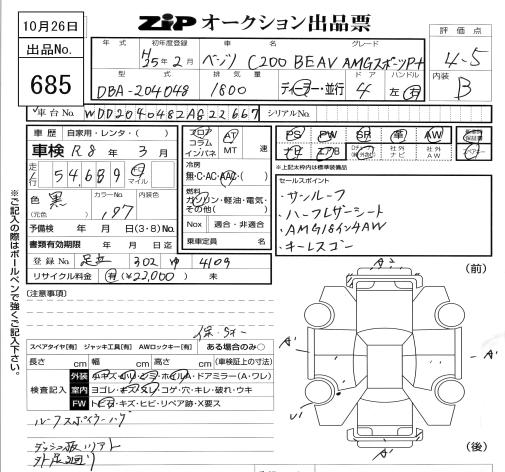 10月26日
ZiP オークション出品票
出品No.
685
年式
初年度登録
車名
グレード
評価点
H25年2月
ベンツ C200 BEAV AMGスポーツP+
4.5
型式
排気量
ディーラー・並行
ドア
ハンドル
内装
DBA-204048
1800
4
左・右
B
車台No. WDD2040482A822667
シリアルNo.
車歴
自家用・レンタ・( )
車検 R8年3月
走行
54,689
km
マイル
色
黒
カラーNo.
内装色
(元色)
197
予備検 年 月 日(3・8)No.
書類有効期限 年 月 日迄
登録No. 足立 302 ゆ 4109
リサイクル料金 有(¥22,000) 未
フロア
コラム
インパネ
AT
MT 速
冷房
無・C・AC・AAC・( )
燃料
ガソリン・軽油・電気・
その他( )
Nox 適合・非適合
乗車定員 名
PS
PW
SR
革
AW
ナビ
社外
ナビ
社外
AW
※上記太枠内は標準装備品
セールスポイント
・サンルーフ
・ハーフレザーシート
・AMG18インチAW
・キーレスゴー
※ご記入の際はボールペンで強くご記入下さい。
[注意事項]
スペアタイヤ[有] ジャッキ工具[有] AWロックキー[有] ある場合のみ〇
長さ cm 幅 cm 高さ cm (車検証上の寸法)
検査記入
外装
キズ・ドアミラー(A・ワレ)
室内
ヨゴレ・キズ・スレ・コゲ・穴・キレ・破れ・ウキ
FW
キズ・ヒビ・リペア跡・X要ス
ダッシュ板ソリアト
外足廻り
(前)
A2
A'
A'
A'
U'
A2
(後)